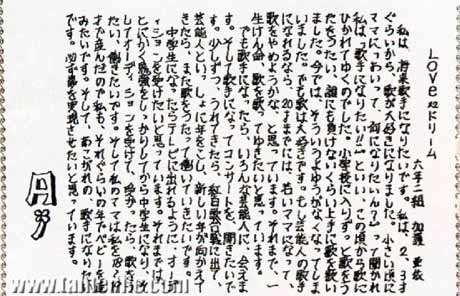 LOVE2ドリーム
六年二組 加護 亜依
私は、将来歌手になりたいです。私は、2、3才
ぐらいから、歌が大好きになりました。小さい頃に
ママに、「あいって、何になりたいん?」って聞かれ
私は、「歌手になりたい!!」といい、この頃から歌に
ひかれてゆくのでした。小学校に入りずっと歌をう
たをうたい、誰にも負けないくらい上手に歌を歌い
ました。今では、そういうとゆうがなくなってしま
いました。でも歌は大好きです。もし芸能人の歌手
になれるなら、20才までには、若いママになって、
歌をやめようかな、と思っています。それまで、一
生けん命、歌を歌ってゆきたいと思っています。
でも歌手になったら、いろんな芸能人に、会えま
す。そして、歌手になってコンサートを、開きたいで
す。少しずつ、うれてきたら、紅白歌合戦に出て、
芸能人といっしょに年をこし、新しい年が向かえて
きたら、また歌をうたって、働いていきたいです。
中学生になったらテレビに出れるように、オーデ
ィションを受けたいと思っています。それまでは、
とにかく勉強をしっかりしてから中学生になり、そ
してオーディションを受けて、受かったら、歌をう
たい、働きたいです。そして私のママは私を18才
才で産んだので私も、それぐらいの年でベビーを産
みたいです。そして、あこがれの、歌手になりたい
です。必ず夢を実現させたいと思っています。